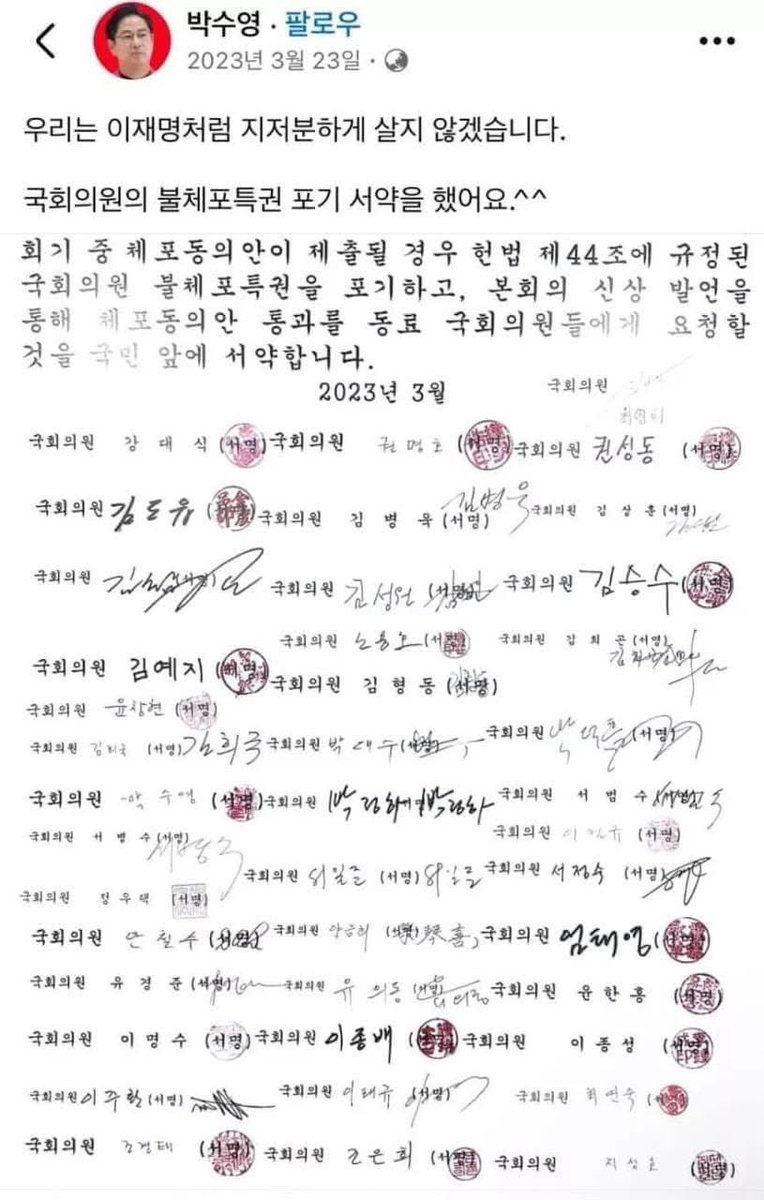 박수영 · 팔로우
2023년 3월 23일 ·
우리는 이재명처럼 지저분하게 살지 않겠습니다.
국회의원의 불체포특권 포기 서약을 했어요.^^
회기 중 체포동의안이 제출될 경우 헌법 제44조에 규정된
국회의원 불체포특권을 포기하고, 본회의 신상 발언을
통해 체포동의안 통과를 동료 국회의원들에게 요청할
것을 국민 앞에 서약합니다.
2023년 3월
국회의원
국회의원 강대식 (서명) 국회의원 권명호 (서명) 국회의원 권성동 (서명)
국회의원 김도읍 국회의원 김병욱 (서명) 김병욱 국회의원 김상훈 (서명)
국회의원 국회의원 김성원 국회의원 김승수 (서명)
국회의원 노용호 (서명) 국회의원 김희곤 (서명)
국회의원 김예지 (서명) 국회의원 김형동 (서명)
국회의원 윤창현 (서명)
국회의원 김희국 (서명) 김희국 국회의원 박대수 국회의원 박덕흠 (서명)
국회의원 박수영 (서명) 국회의원 박정하 (서명) 박정하 국회의원 서범수
국회의원 서병수 (서명) 국회의원 (서명)
국회의원 정우택 (서명) 국회의원 서일준 (서명) 서일준 국회의원 서정숙 (서명)
국회의원 안철수 (서명) 국회의원 양금희 국회의원 엄태영 (서명)
국회의원 유경준 (서명) 국회의원 유의동 국회의원 윤한홍 (서명)
국회의원 이명수 (서명) 국회의원 이종배 국회의원 이종성 (서명)
국회의원 이주환 (서명) 국회의원 이태규 (서명) 국회의원 최연숙 (서명)
국회의원 조경태 (서명) 국회의원 조은희 (서명) 국회의원 지성호 (서명)